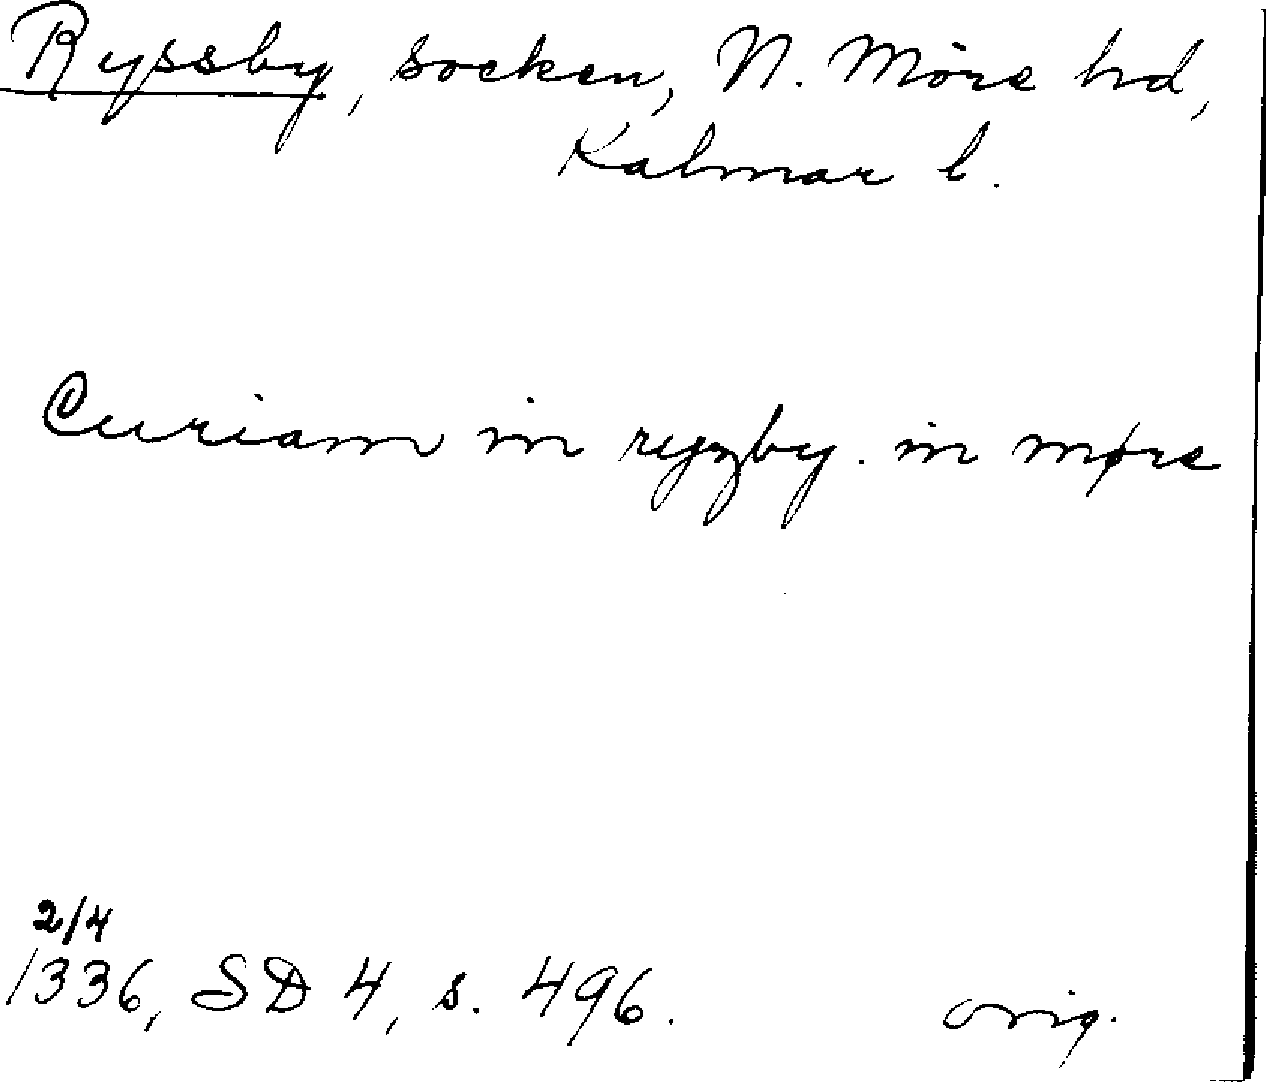 Ryssby, socken, N. Möre hd,
Kalmar l.
Curiam in ryzby. in møre
2/4
1336, SD 4, s. 496.
orig.